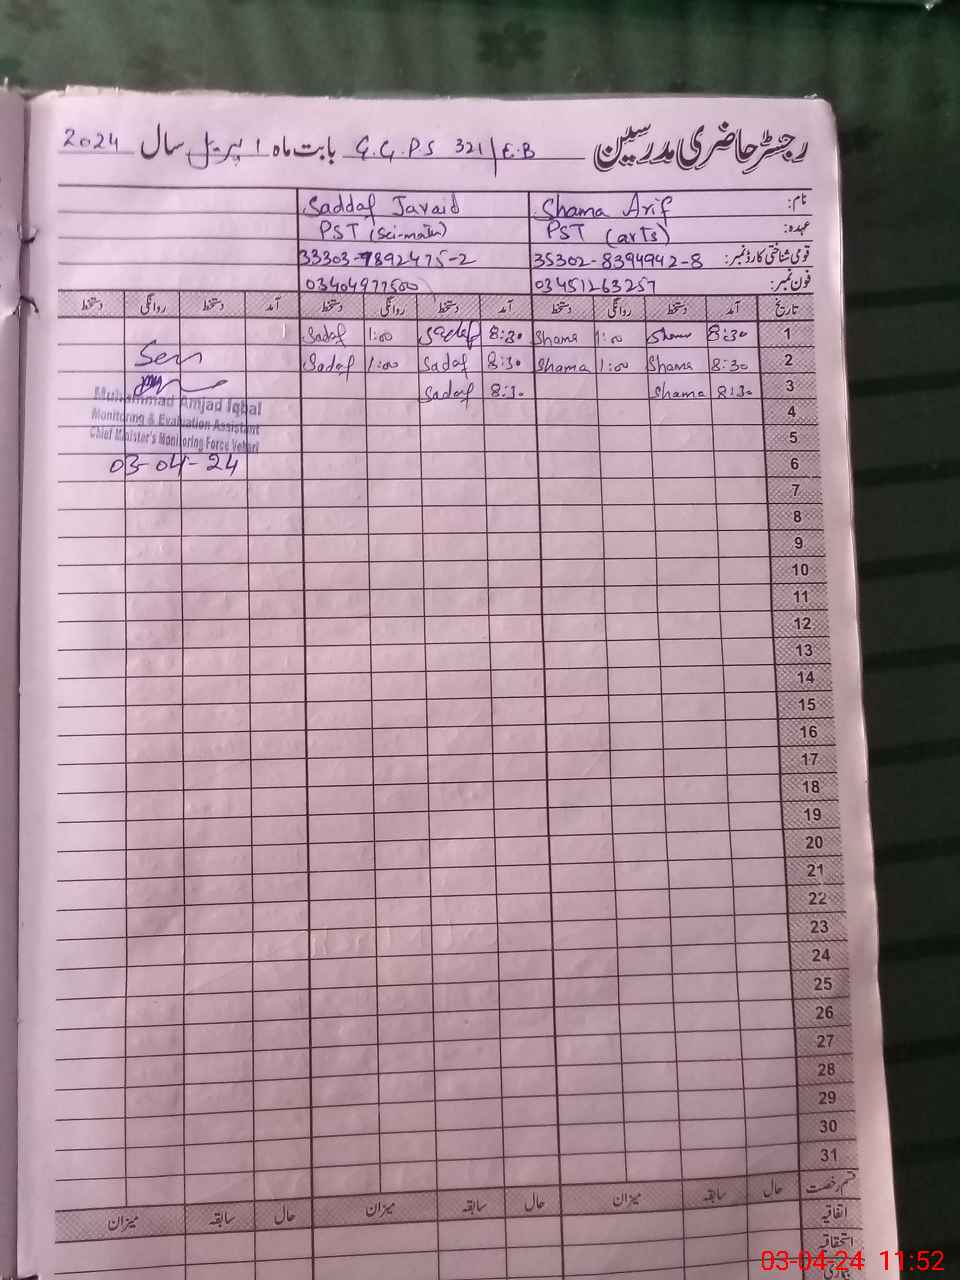 رجسٹر حاضری مدرسین G.G.P.S 321/E.B بابت ماہ اپریل سال 2024
نام: Shama Arif Saddaf Javaid
عہدہ: PST (arts) PST (Sci-math)
قومی شناختی کارڈ نمبر: 35302-8394942-8 33303-7892475-2
فون نمبر: 03451263257 03404977500
تاریخ آمد دستخط روانگی دستخط آمد دستخط روانگی دستخط آمد دستخط روانگی دستخط
1 8:30 Shama 1:00 Shama 8:30 Sadaf 1:00 Sadaf
2 8:30 Shama 1:00 Shama 8:30 Sadaf 1:00 Sadaf
3 8:30 Shama 8:30 Sadaf
Muhammad Amjad Iqbal
Monitoring & Evaluation Assistant
Chief Minister's Monitoring Force Vehari
03-04-24
4
5
6
7
8
9
10
11
12
13
14
15
16
17
18
19
20
21
22
23
24
25
26
27
28
29
30
31
قسم رخصت حال سابقہ میزان حال سابقہ میزان حال سابقہ میزان
اتفاقیہ
استحقاقیہ
03-04-24 11:52